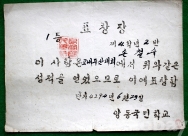 표창장
1등
제4학년 2반
이 사람은 에서 위와같은
성적을 얻었으므로 이에표창함
단기 4290년 6월 29일
국민학교